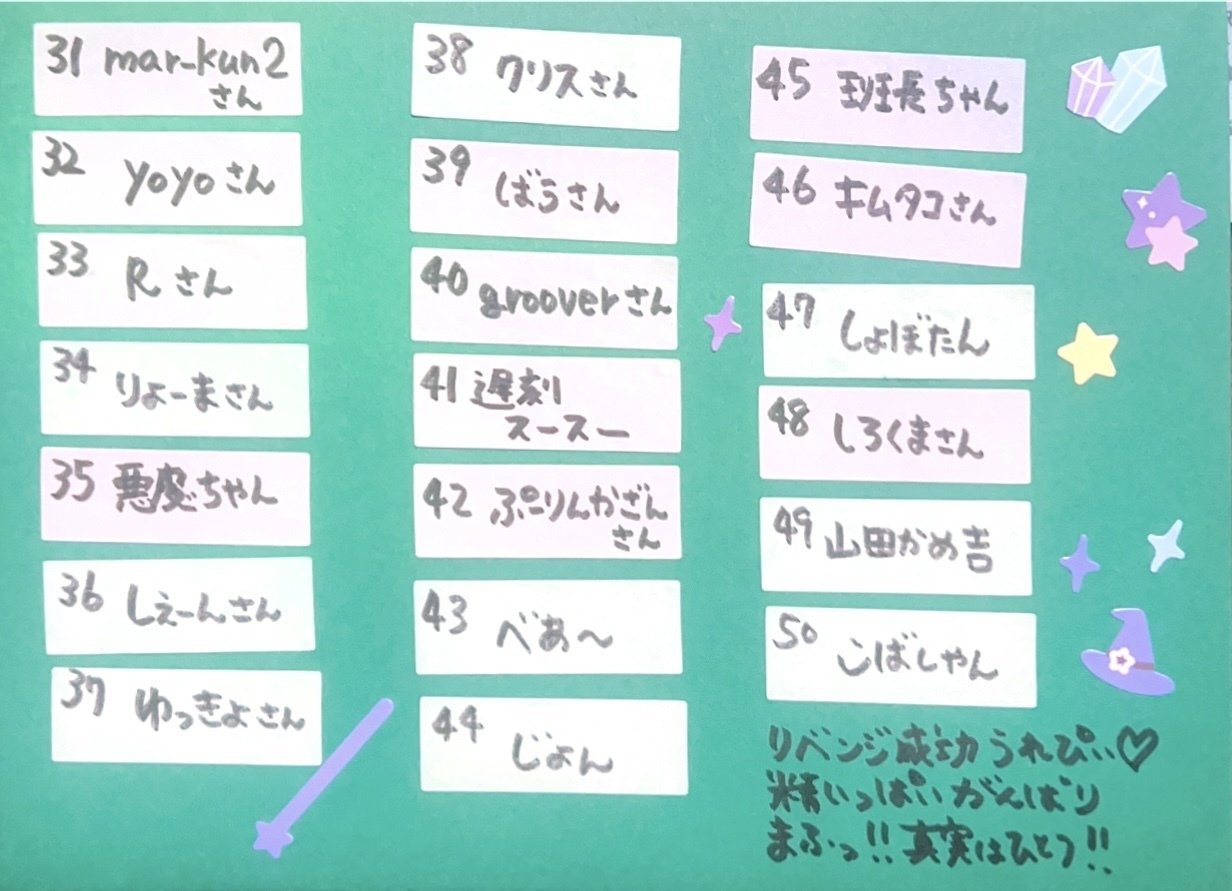 31 mar-kun2
さん
32 yoyoさん
33 Rさん
34 りょーまさん
35 悪魔ちゃん
36 しぇーんさん
37 ゆっきよさん
38 クリスさん
39 ばうさん
40 grooverさん
41 遅刻
スースー
42 ぷりんかざん
さん
43 べあ〜
44 じょん
45 班長ちゃん
46 キムタコさん
47 しょぼたん
48 しろくまさん
49 山田かめ吉
50 こばしゃん
リベンジ成功うれぴぃ♡
精いっぱいがんばり
まふっ!!真実はひとつ!!